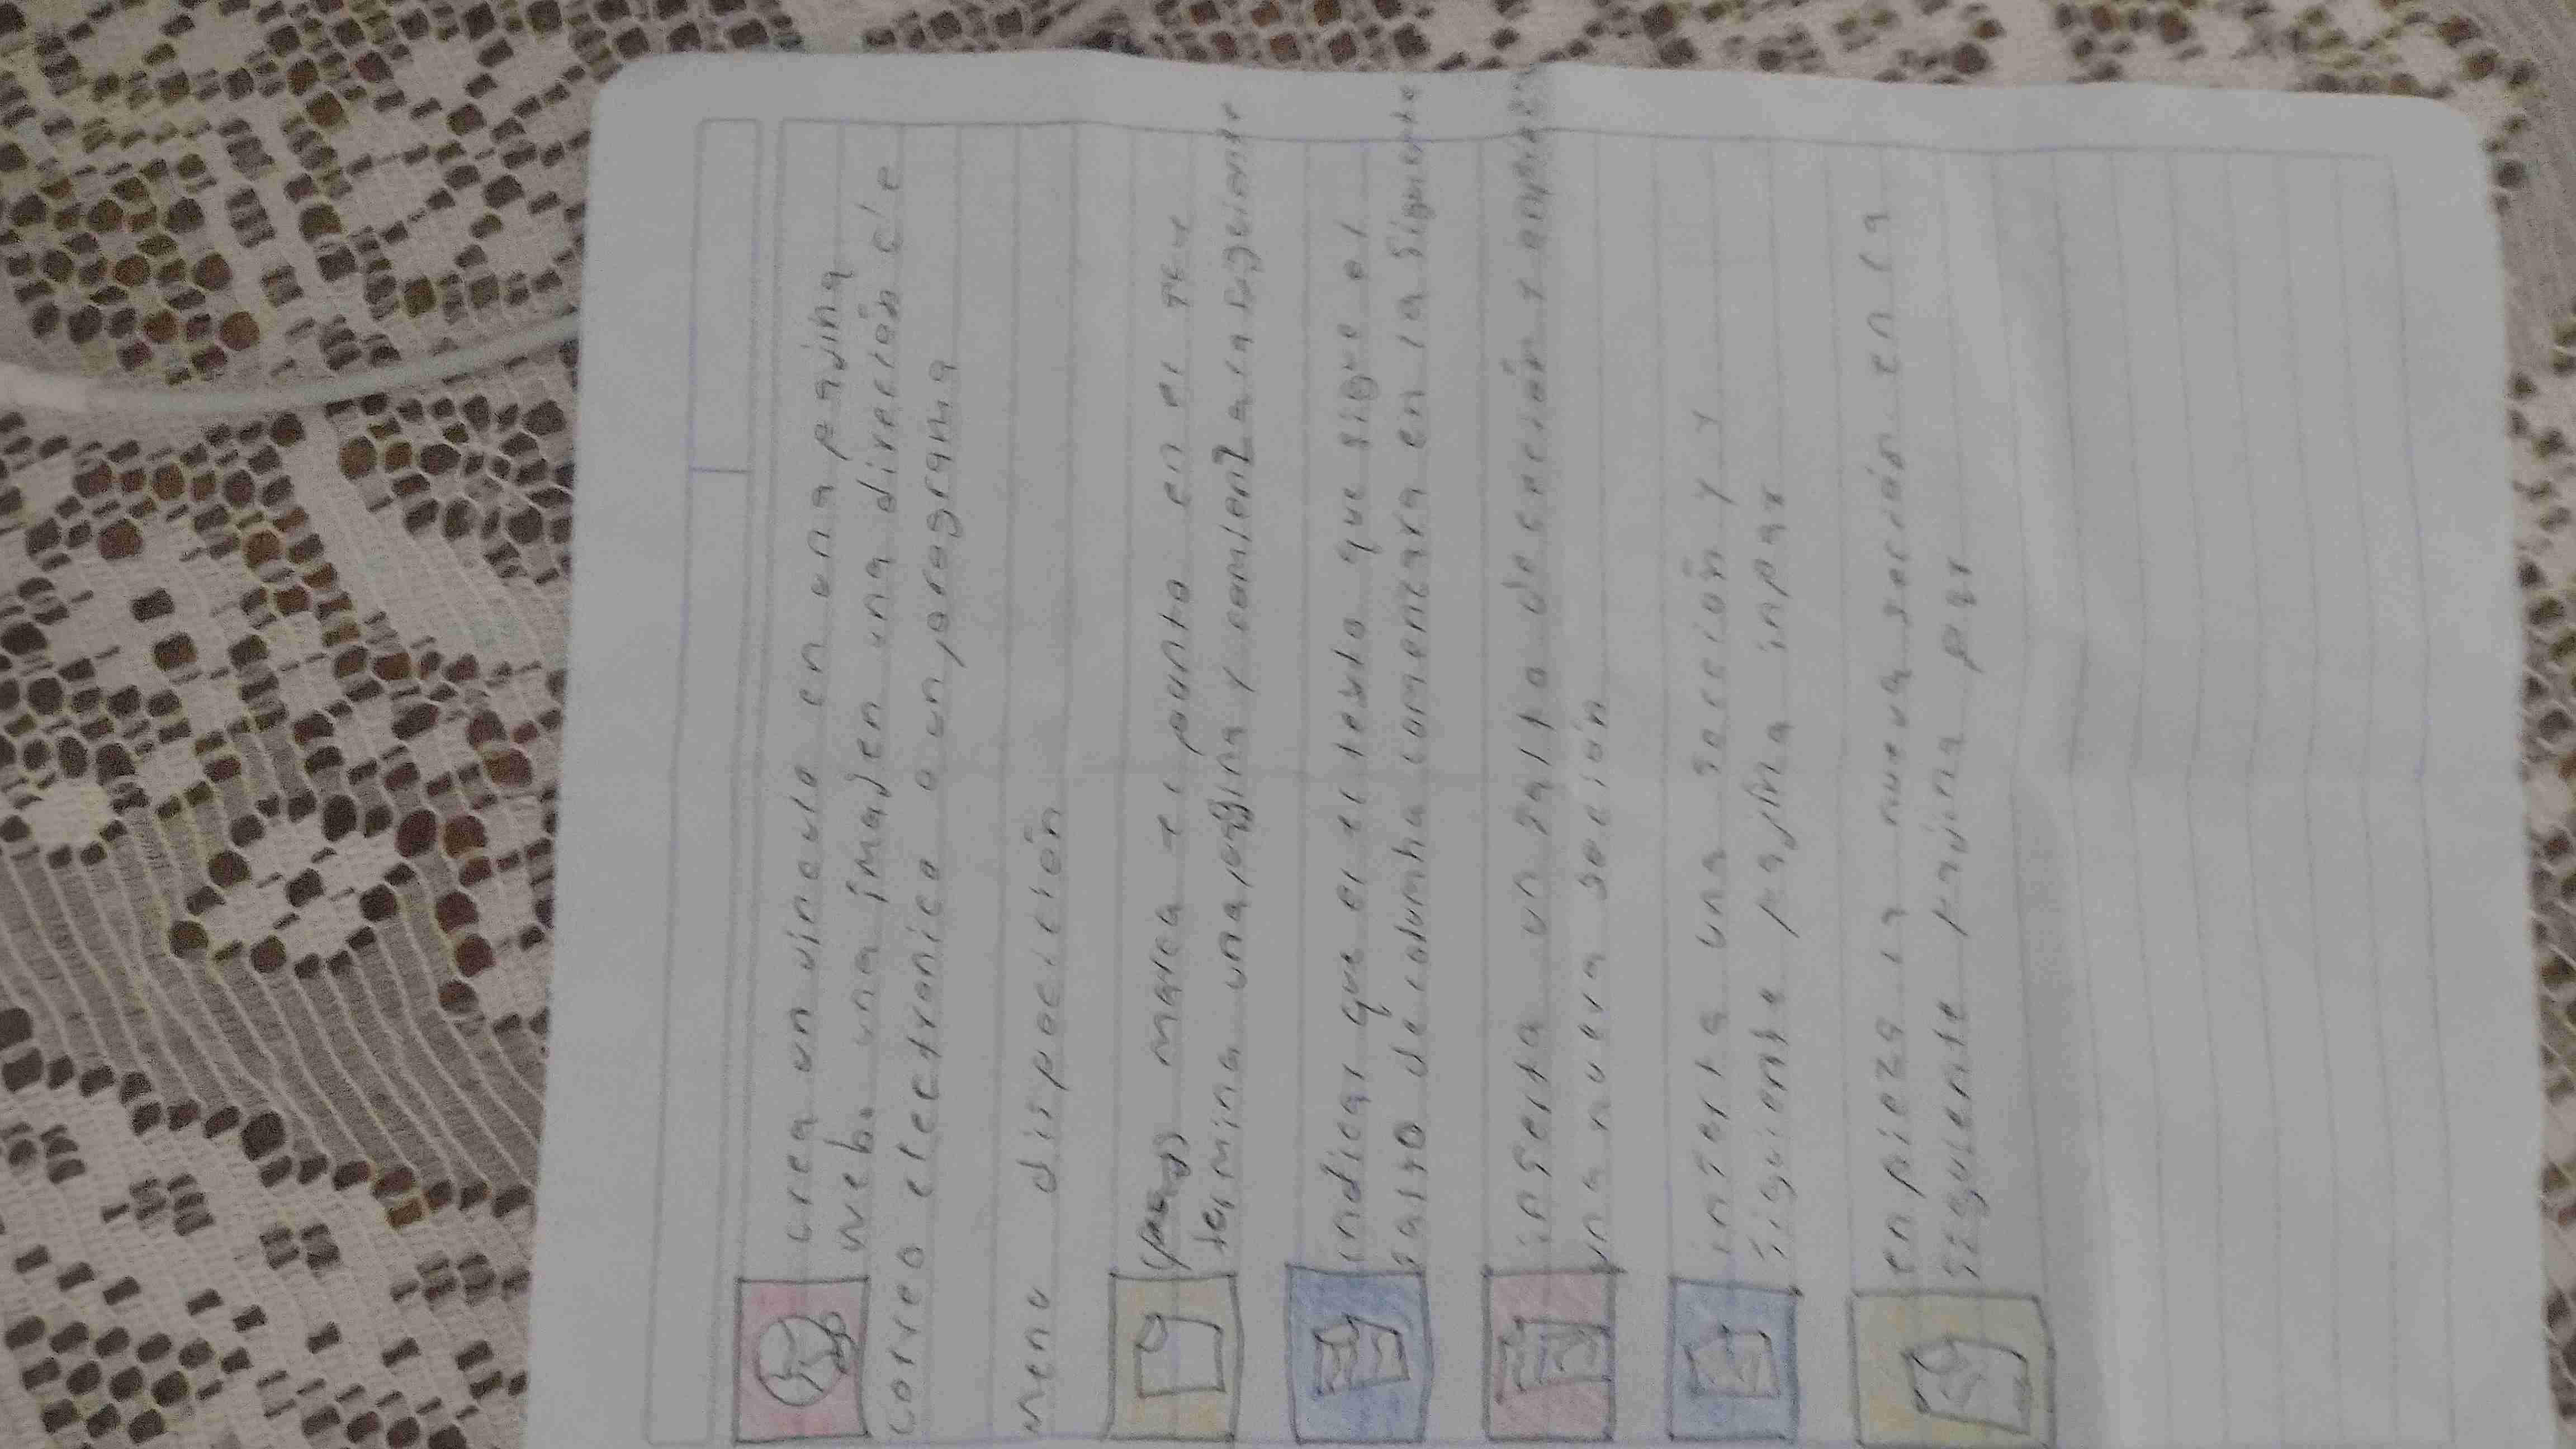 crea un vinculo en una pajina
web. una imajen una dirección de
correo electronico o un programa
menu dispocición
marca el punto en el que
termina una pagina y comienza la siguiente
indicar que el testo que sigue el
salto de columna comenzara en la siguiente
inserta un salto de seccion y empieza
una nueva seción
interta una sección y
siguiente pajina inpar
enpieza la nueva seción en la
siguiente pajina par